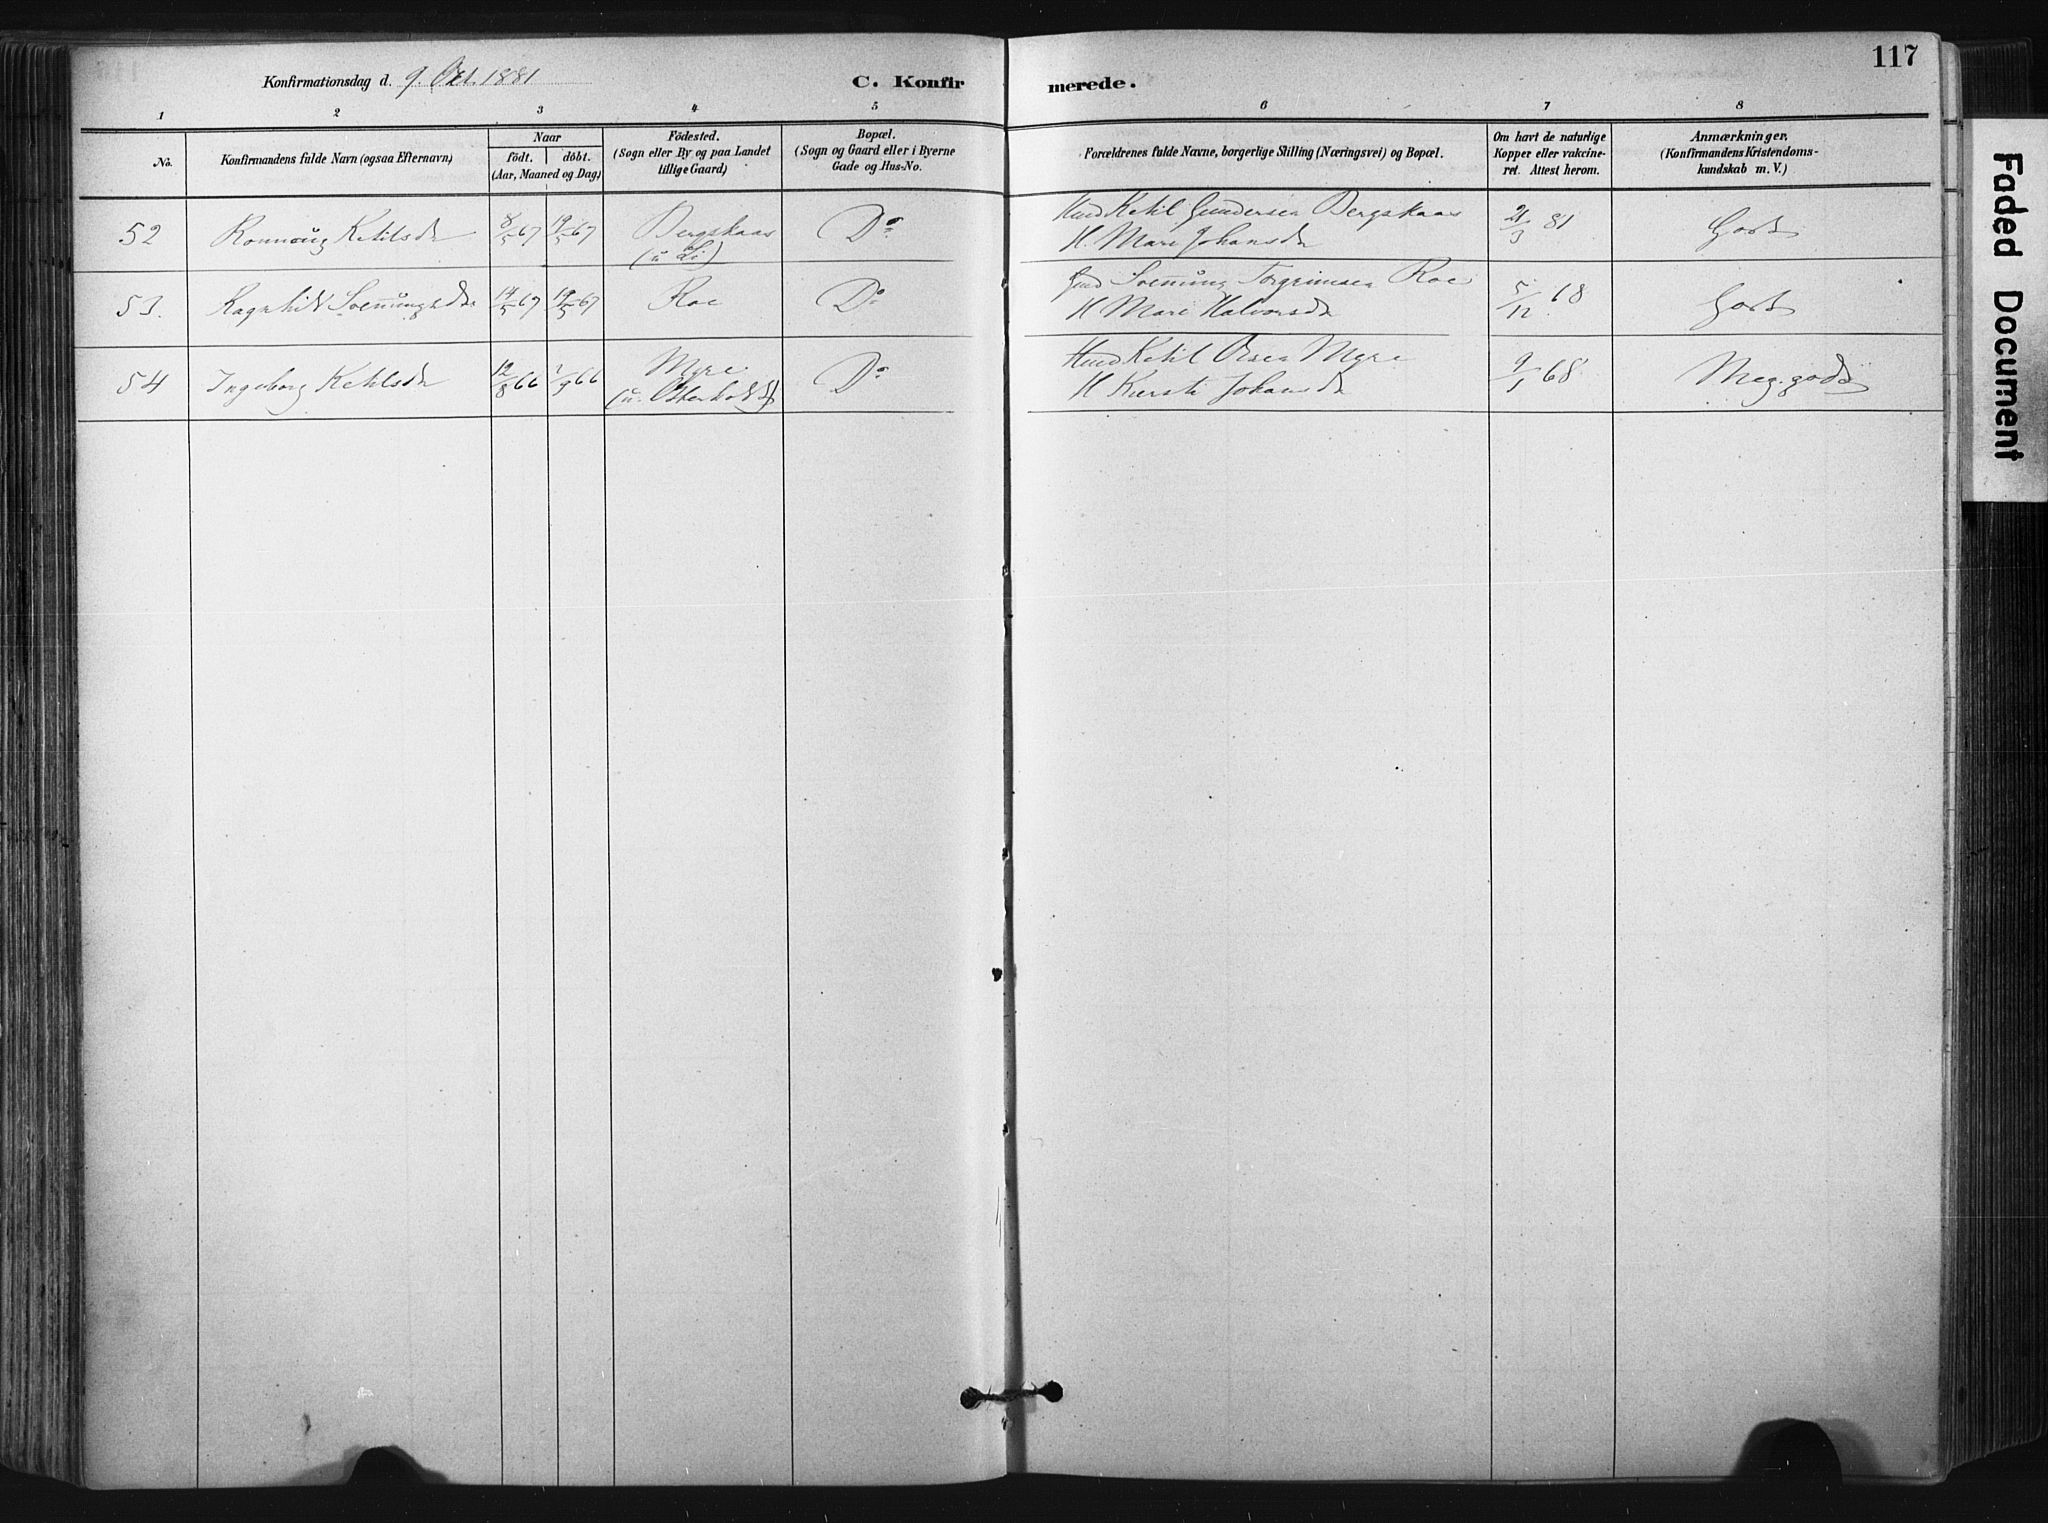 117
Konfirmationsdag d. 9. Oct. 1881
C. Konfirmerede.
1 2 3 4 5 6 7 8
No.
Konfirmandens fulde Navn (ogsaa Efternavn)
Naar
födt. döbt.
(Aar, Maaned og Dag)
Födested.
(Sogn eller By og paa Landet
tillige Gaard)
Bopæl.
(Sogn og Gaard eller i Byerne
Gade og Hus-No.
Forældrenes fulde Navne, borgerlige Stilling (Næringsvei) og Bopæl.
Om havt de naturlige
Kopper eller vakcine-
ret. Attest herom.
Anmærkninger.
(Konfirmandens Kristendoms-
kundskab m. V.)
52 Ronnoug Ketilsd 8/5 67 19/5 67 Bergskaas
(u Li) Do Husm Ketil Gundersen Bergskaas
H. Mari Johansd 21/3 81 Godt
53. Ragnhild Svenungsd 14/5 67 19/5 67 Roe Do Gmd Svenung Torgrimsen Roe
H Mari Halvorsd 5/12 68 Godt
54 Ingeborg Ketilsd 12/8 66 /9 66 Myre
(u. Otterholdt) Do Husm Ketil Olsen Myre
H Kirsti Johansd 9/1 68 Meg. godt
Faded Document